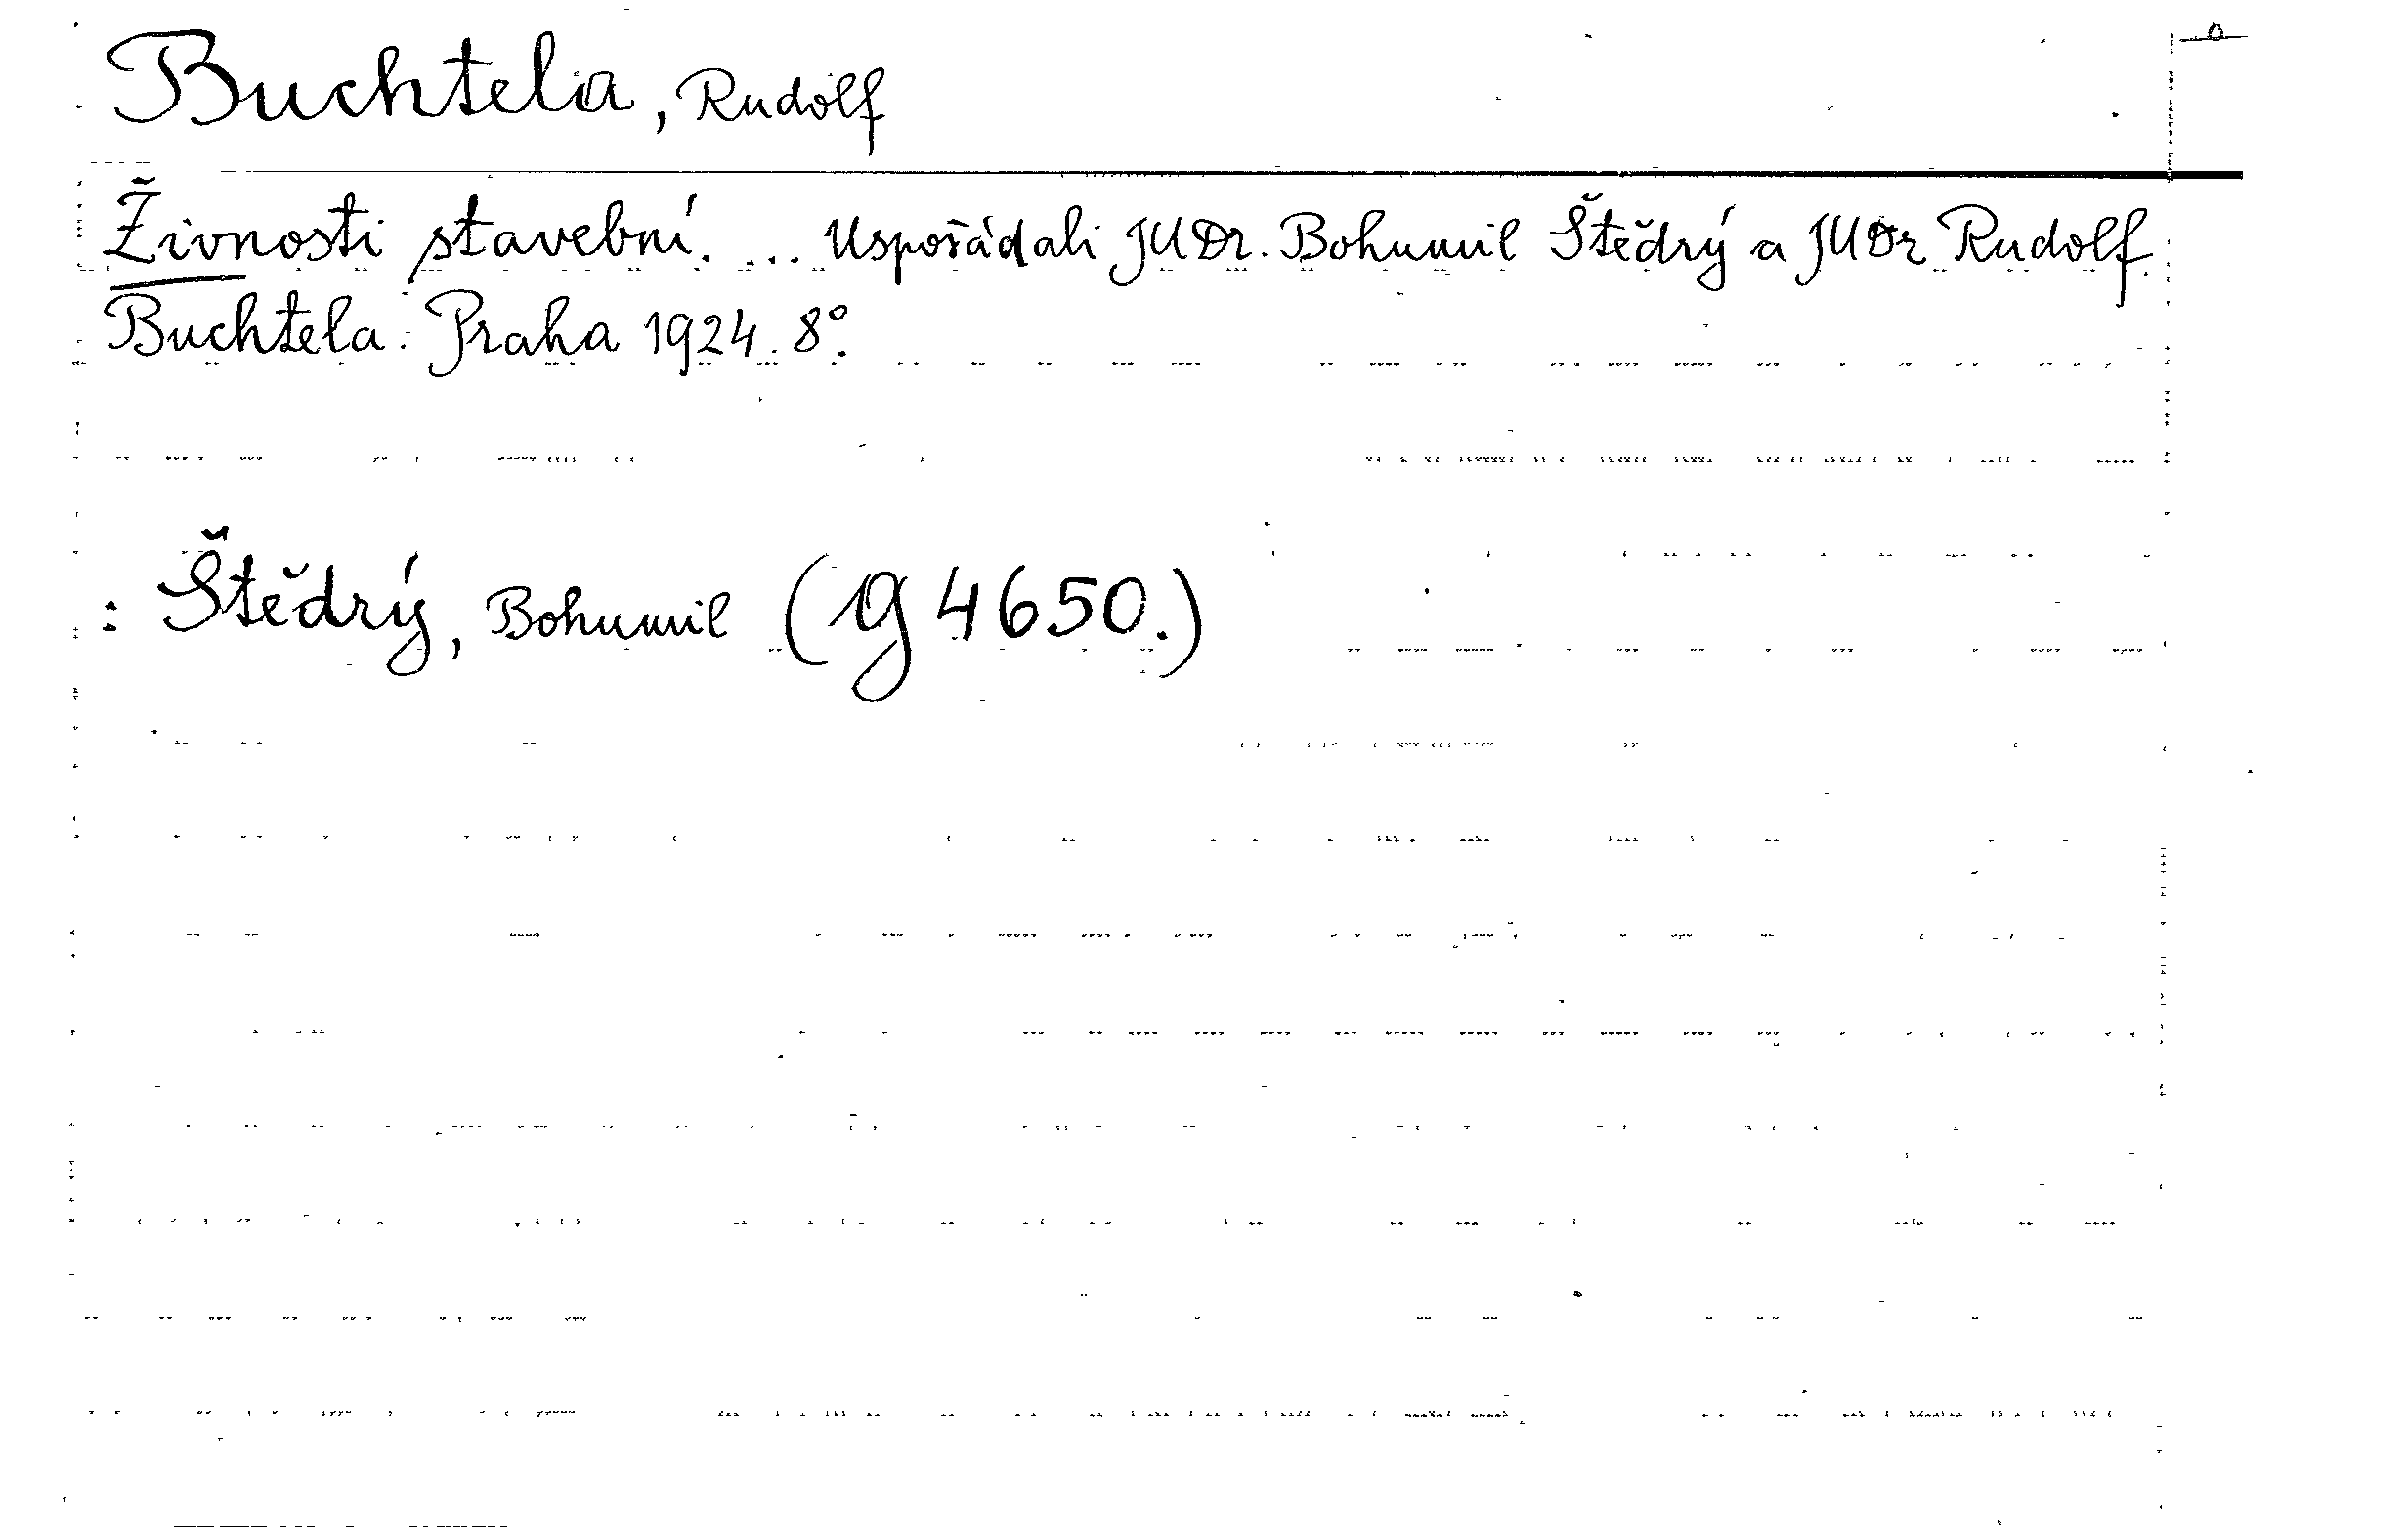 Buchtela, Rudolf
Živnosti stavební. ... Uspořádali JUDr. Bohumil Štědrý a JUDr Rudolf
Buchtela. Praha 1924. 8°.
: Štědrý, Bohumil (g 4650.)